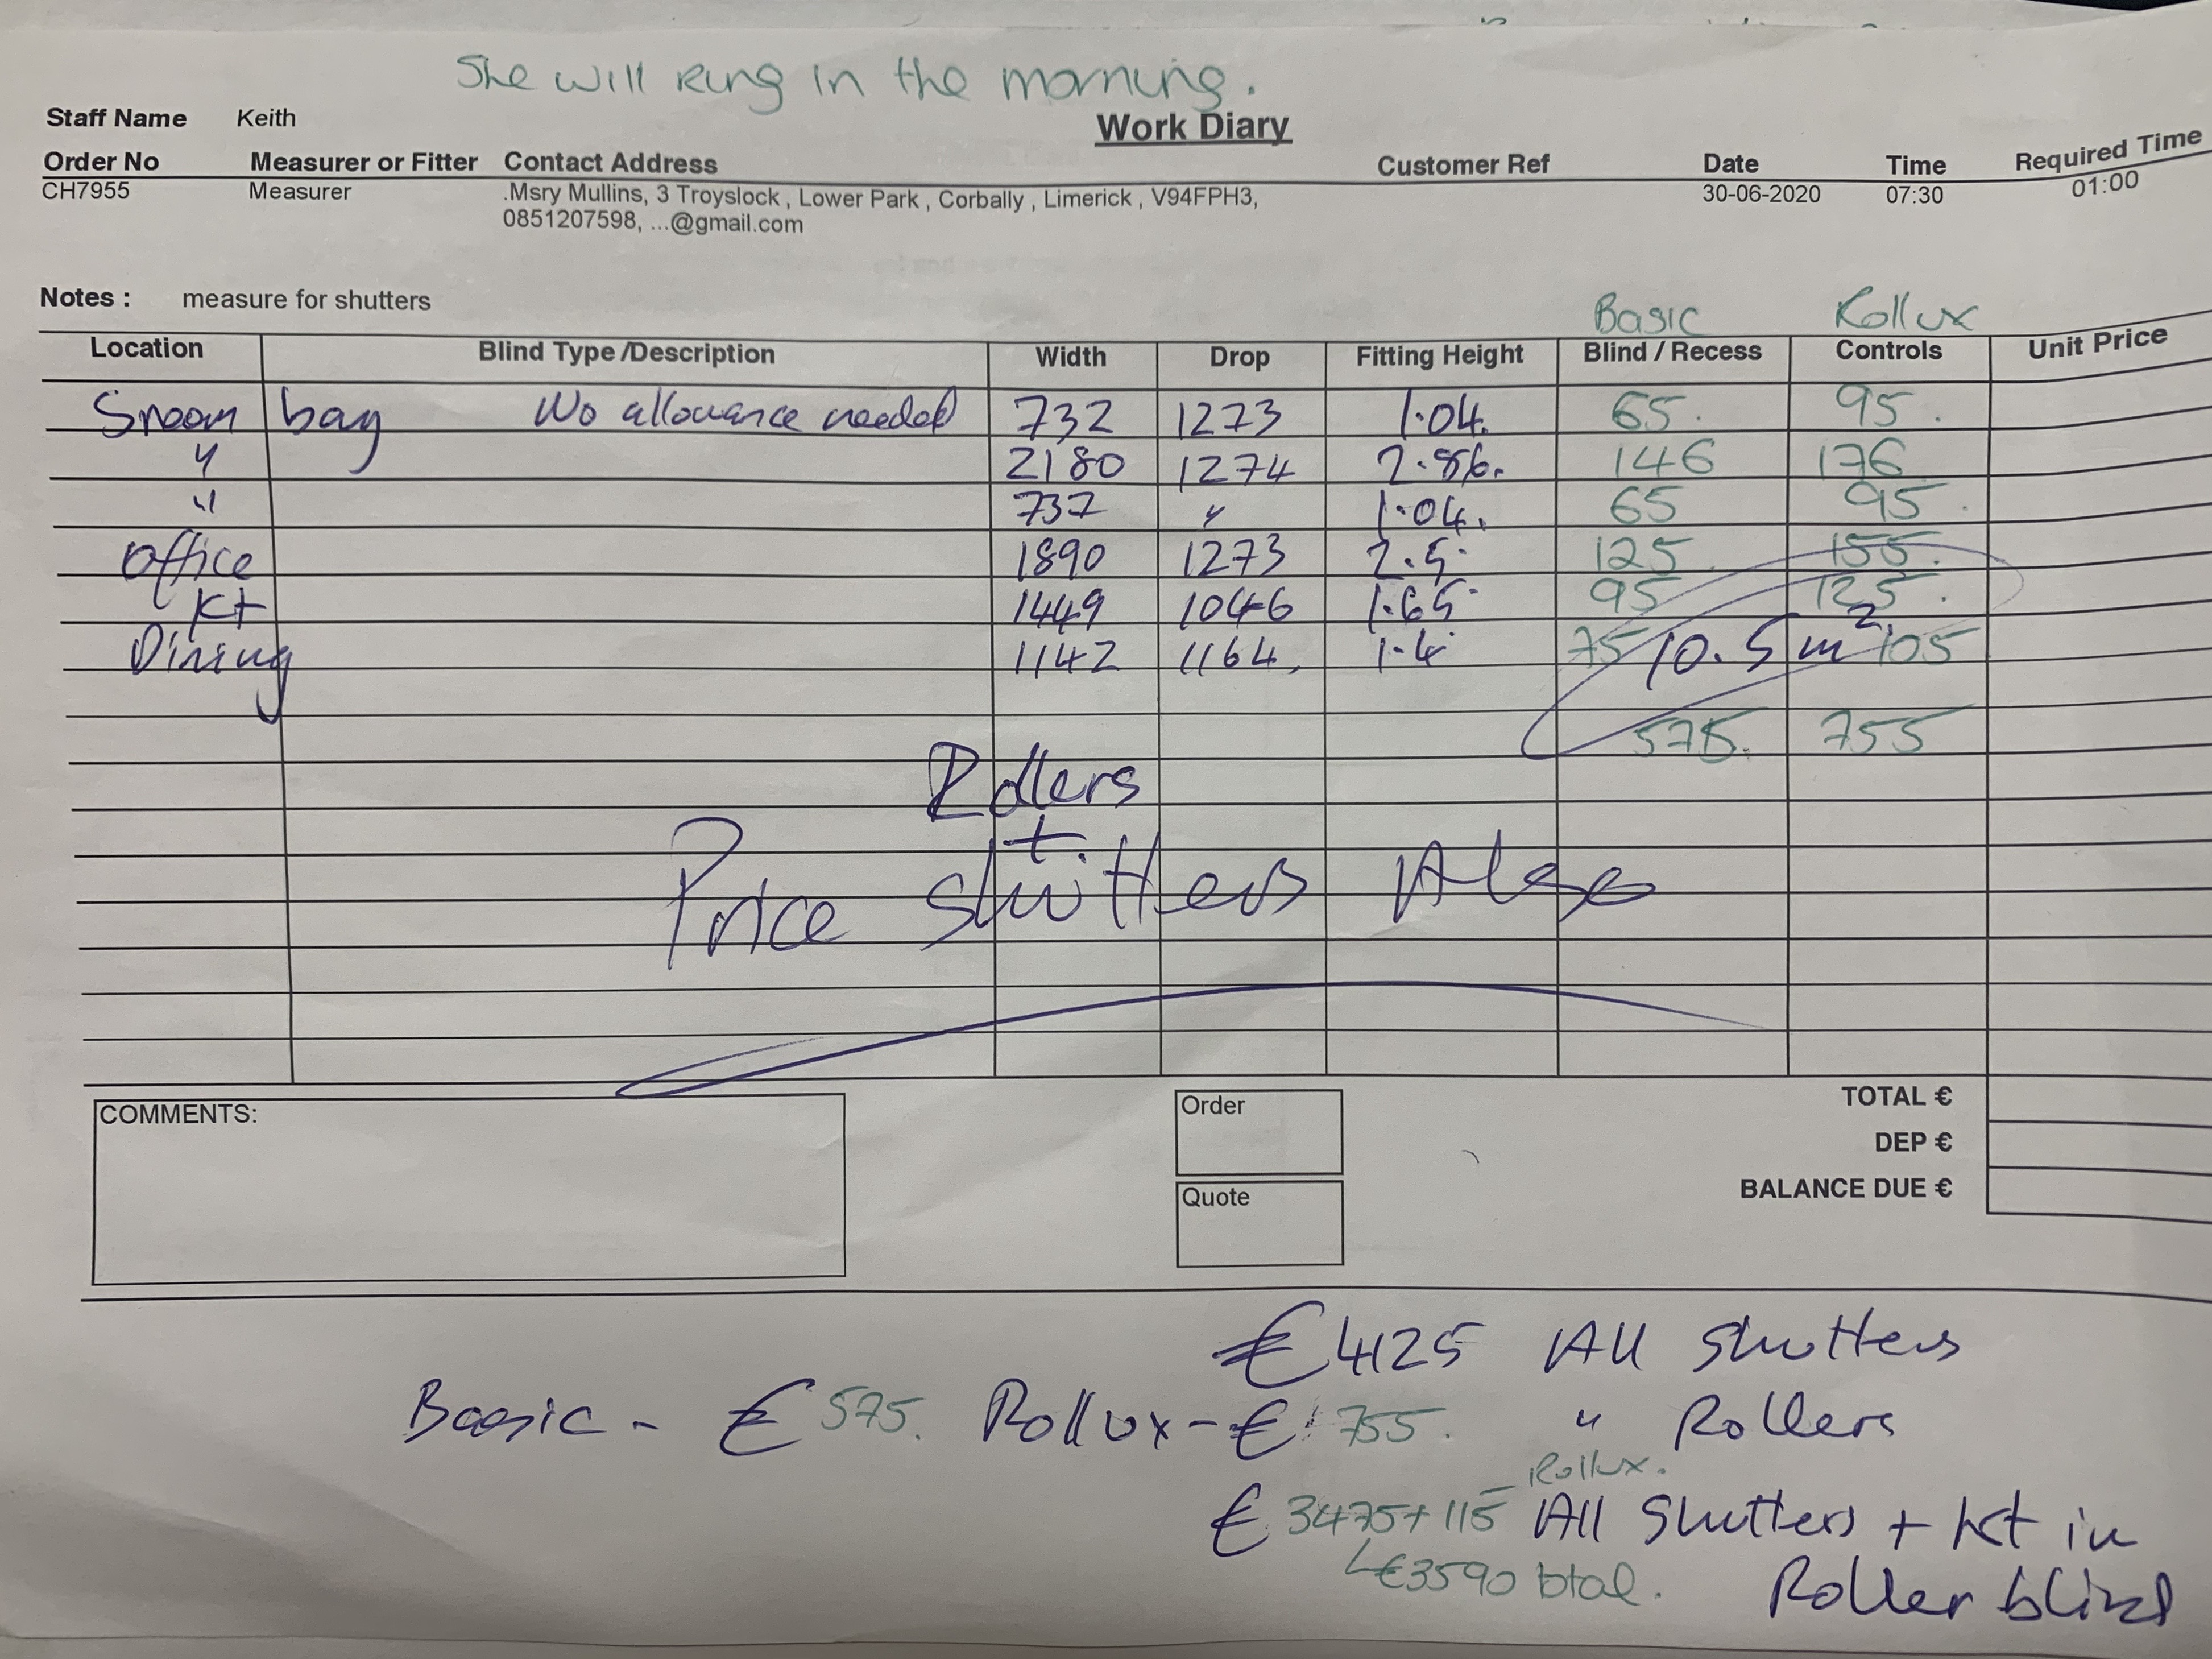 She will ring in the morning.
Staff Name Keith
Work Diary
Order No Measurer or Fitter Contact Address Customer Ref Date Time Required Time
CH7955 Measurer .Msry Mullins, 3 Troyslock , Lower Park , Corbally , Limerick , V94FPH3, 30-06-2020 07:30 01:00
0851207598, ...@gmail.com
Notes : measure for shutters
Basic Rollux
Location Blind Type /Description Width Drop Fitting Height Blind / Recess Controls Unit Price
Sroom bay No allowance needed 732 1273 1.04. 65. 95.
" 2180 1274 2.86. 146 176
" 737 " 1.04. 65 95.
Office 1890 1273 2.5. 125. 155.
Kt 1449 1046 1.65. 95 125.
Dining 1142 1164. 1.4 75 10.5 m² 105
575. 755
Rollers
+.
Price shutters Also
COMMENTS:
Order
Quote
TOTAL €
DEP €
BALANCE DUE €
€4125 All Shutters
Basic - € 575. Rollux - € 755. " Rollers
Rollux.
€ 3475 + 115 All Shutters + Kt in
€3590 total. Roller blind